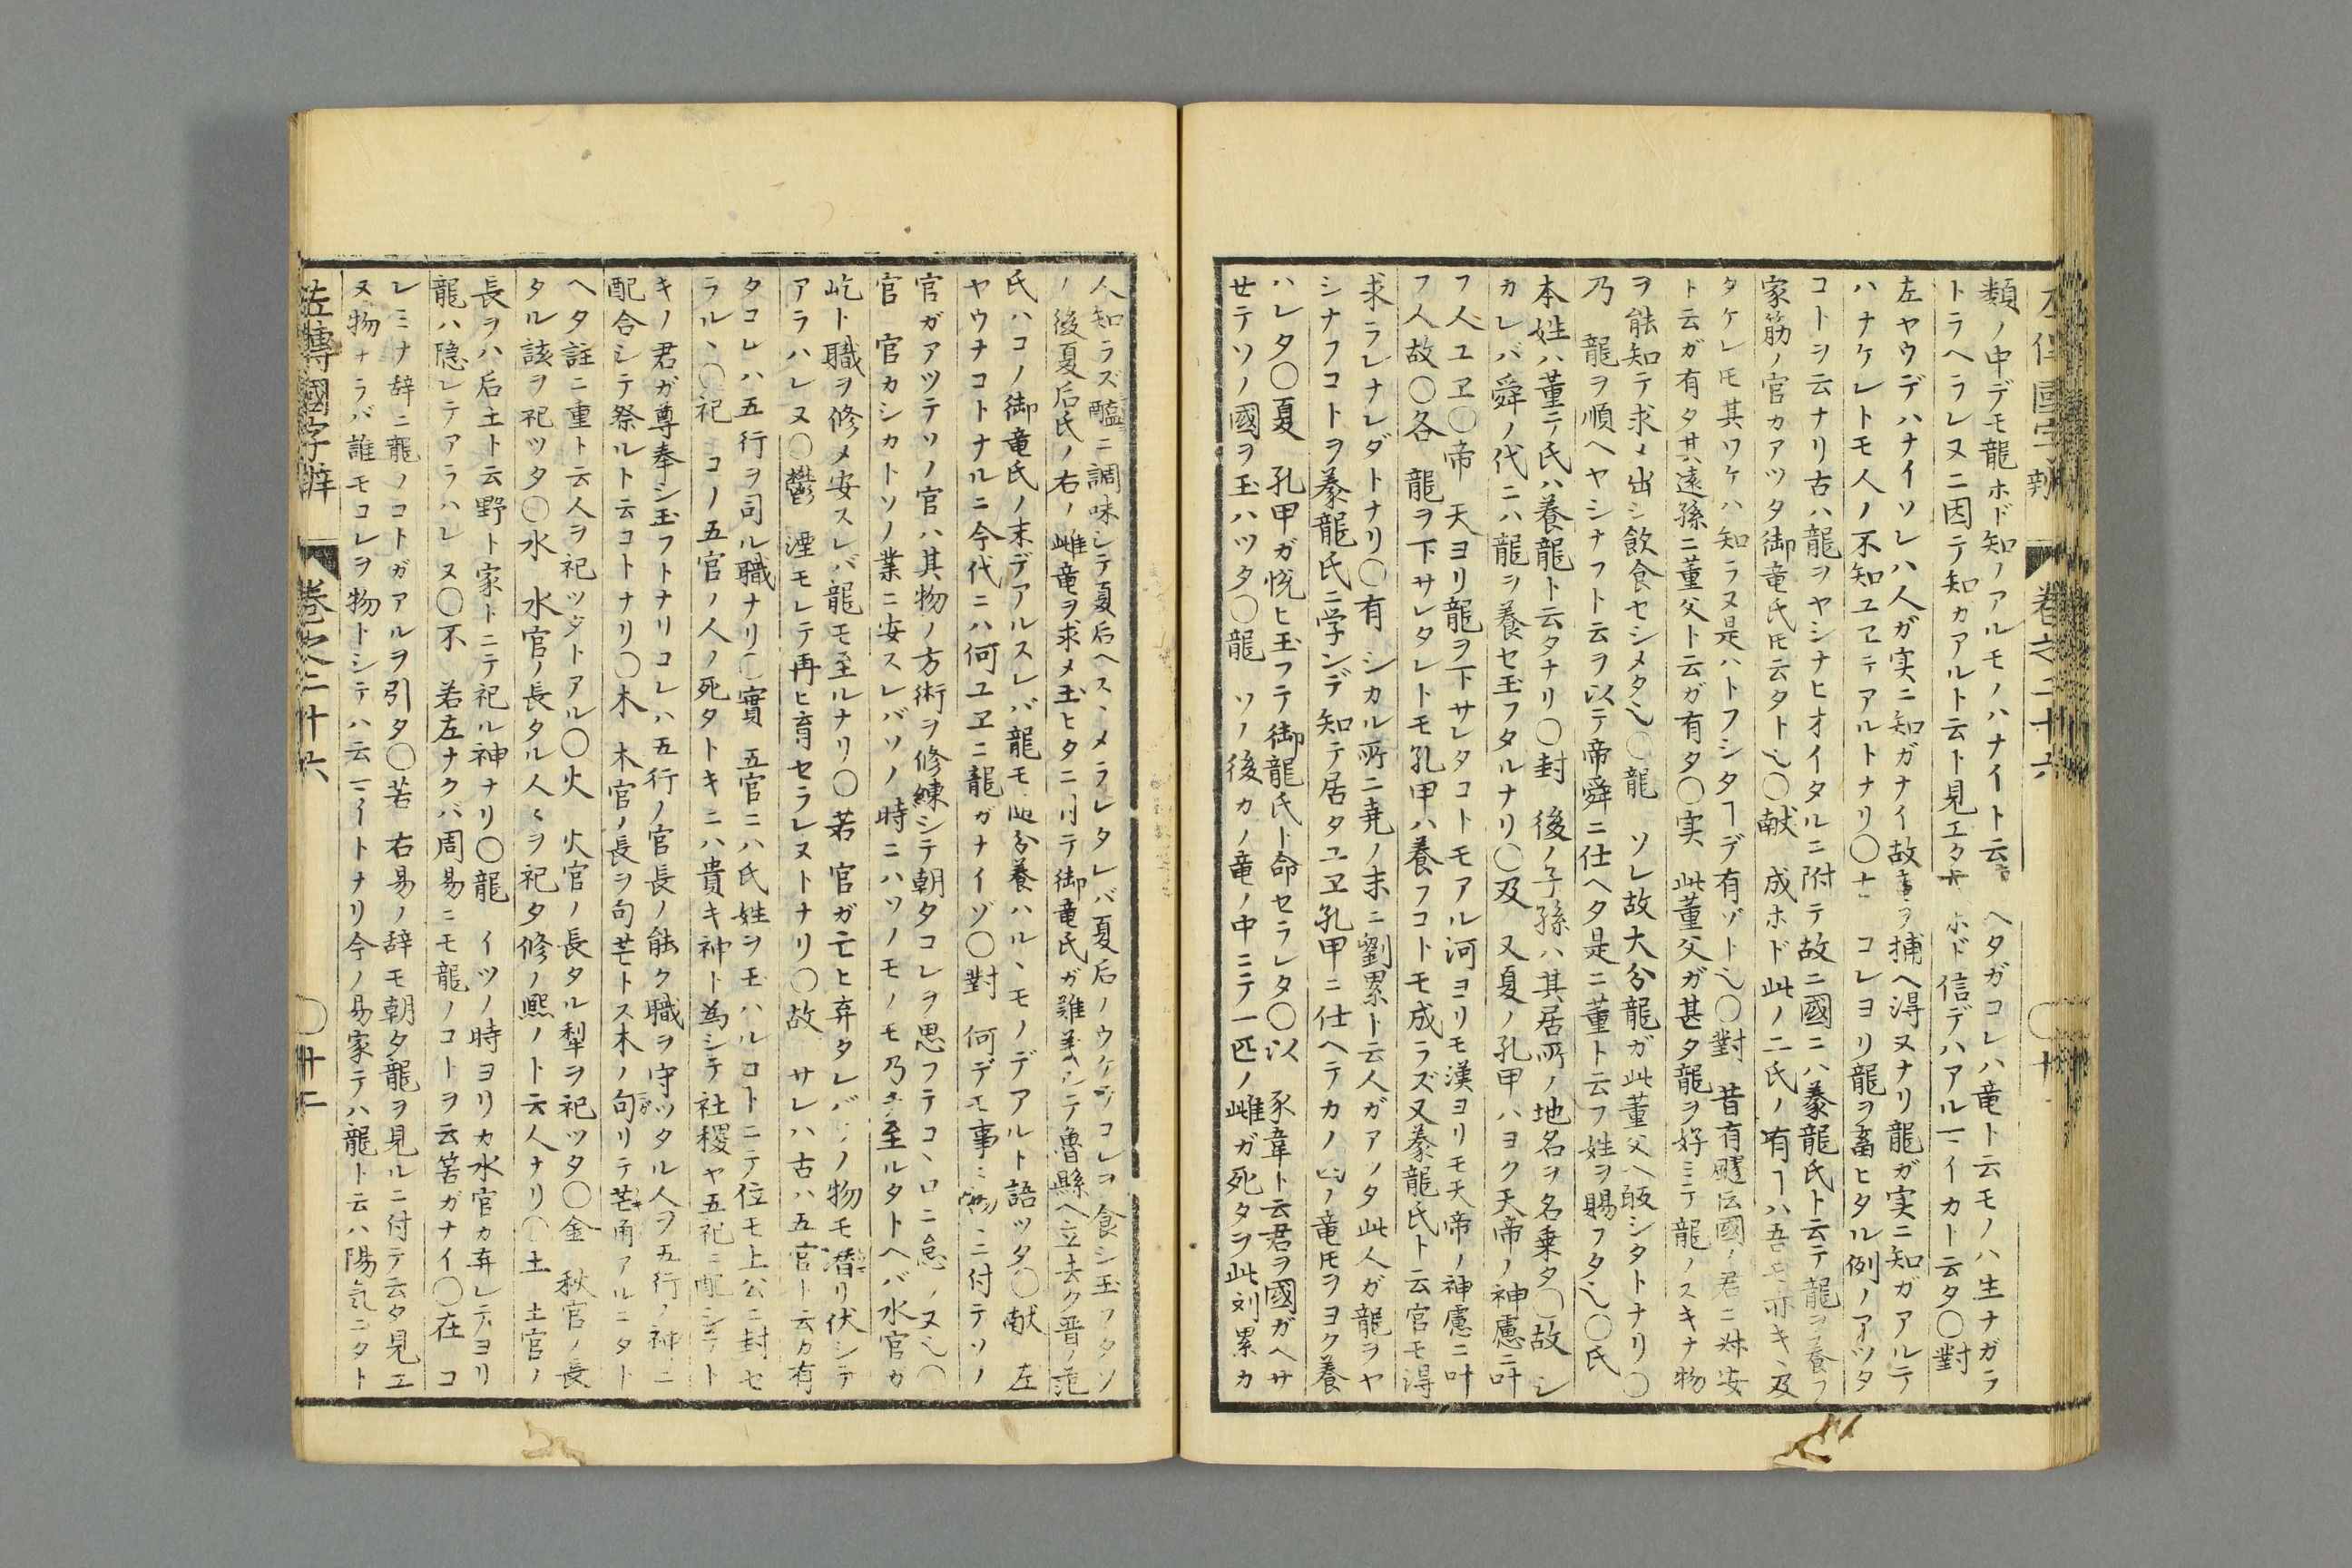 類ノ中デモ龍ホド知ノアルモノハナイト云 ヘタガコレハ竜ト云モノハ生ナガラ
トラヘラレヌニ因テ知カアルト云ト見エタ ホド信デハアル イカト云タ〇對
左ヤウデハナイソレハ人ガ実ニ知ガナイ故 ヲ捕ヘ淂ヌナリ龍ガ実ニ知ガアルテ
ハナケレトモ人ノ不知ユヱテアルトナリ〇 コレヨリ龍ヲ畜ヒタル例ノアツタ
コトヲ云ナリ古ハ龍ヲヤシナヒオイタルニ附テ故ニ國ニハ豢龍氏ト云テ龍ヲ養フ
家筋ノ官カアツタ御竜氏𪜈云タト也〇献 成ホド此ノ二氏ノ有ヿハ吾モ亦キヽ及
タケレ𪜈其ワケハ知ラヌ是ハトフシタヿデ有ゾト也〇對 昔有飂ト云國ノ君ニ叔安
ト云ガ有タ其遠孫ニ董父ト云ガ有タ〇実 此董父ガ甚タ龍ヲ好ミテ龍ノスキナ物
ヲ能知テ求メ出シ飲食セシメタ也〇龍 ソレ故大分龍ガ此董父ヘ皈シタトナリ〇
乃 龍ヲ順ヘヤシナフト云ヲ以テ帝舜ニ仕ヘタ是ニ董ト云フ姓ヲ賜フタ也〇氏
本姓ハ董テ氏ハ養龍ト云タナリ〇封 後ノ子孫ハ其居所ノ地名ヲ名乗タ〇故 シ
カレバ舜ノ代ニハ龍ヲ養セ玉フタルナリ〇及 又夏ノ孔甲ハヨク天帝ノ神慮ニ叶
フ人ユヱ〇帝 天ヨリ龍ヲ下サレタコトモアル河ヨリモ漢ヨリモ天帝ノ神慮ニ叶
フ人故〇各 龍ヲ下サレタレトモ孔甲ハ養フコトモ成ラズ又豢龍氏ト云官モ淂
求ラレナレダトナリ〇有 シカル所ニ尭ノ末ニ劉累ト云人ガアツタ此人ガ龍ヲヤ
シナフコトヲ豢龍氏ニ学ンデ知テ居タユヱ孔甲ニ仕ヘテカノ四ノ竜𪜈ヲヨク養
ハレタ〇夏 孔甲ガ悦ヒ玉フテ御龍氏ト命セラレタ〇以 豕韋ト云君ヲ國ガヘサ
せテソノ國ヲ玉ハツタ〇龍 ソノ後カノ竜ノ中ニテ一匹ノ雌ガ死タヲ此刘累カ
人知ラズ醢ニ調味シテ夏后ヘスヽメラレタレバ夏后ノウケテコレヲ食シ玉フタソ
ノ後夏后氏ノ右ノ雌竜ヲ求メ玉ヒタニ因テ御竜氏ガ難義シテ魯縣ヘ立去ク晋ノ范
氏ハコノ御竜氏ノ末デアルスレバ龍モ随分養ハルヽモノデアルト語ツタ〇献 左
ヤウナコトナルニ今代ニハ何ユヱニ龍ガナイゾ〇對 何デモ事ミ物ミニ付テソノ
官ガアツテソノ官ハ其物ノ方術ヲ修練シテ朝タコレヲ思フテコヽロニ怠ノヌ也〇
官 官カシカトソノ業ニ安スレバソノ時ニハソノモノモ乃チ至ルタトヘバ水官ガ
屹ト職ヲ修メ安スレバ龍モ至ルナリ〇若 官ガ亡ヒ弃タレバソノ物モ潜リ伏シテ
アラハレヌ〇鬱 湮モレテ再ヒ育セラレヌトナリ〇故 サレハ古ハ五官ト云カ有
タコレハ五行ヲ司ル職ナリ〇實 五官ニハ氏姓ヲ玉ハルコトニテ位モ上公ニ封セ
ラルヽ〇祀 コノ五官ノ人ノ死タトキニハ貴キ神ト爲シテ社稷ヤ五祀ニ配シテト
キノ君ガ尊奉シ玉フトナリコレハ五行ノ官長ノ能ク職ヲ守ツタル人ヲ五行ノ神ニ
配合シテ祭ルト云コトナリ〇木 木官ノ長ヲ句芒トス木ノ句リテ芒角アルニタト
ヘタ註ニ重ト云人ヲ祀ツタトアル〇火 火官ノ長タル犁ヲ祀ツタ〇金 秋官ノ長
タル該ヲ祀ツタ〇水 水官ノ長タル人〻ヲ祀タ修ノ熙ノト云人ナリ〇土 土官ノ
長ヲハ后土ト云野ト家トニテ祀ル神ナリ〇龍 イツノ時ヨリカ水官カ弃レテヨリ
龍ハ隠レテアラハレヌ〇不 若左ナクバ周易ニモ龍ノコトヲ云筈ガナイ〇在 コ
レミナ辞ニ龍ノコトガアルヲ引タ〇若 右易ノ辞モ朝タ龍ヲ見ルニ付テ云タ見エ
ヌ物ナラバ誰モコレヲ物トシテハ云ニイトナリ今ノ易家テハ龍ト云ハ陽気ニタト
左傳國字辯 巻之二十六 〇十二